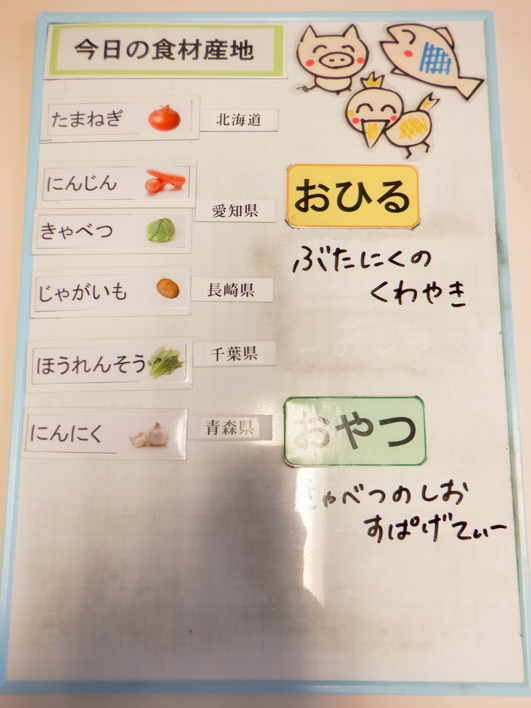 今日の食材産地
たまねぎ 北海道
にんじん
愛知県
きゃべつ
じゃがいも 長崎県
ほうれんそう 千葉県
にんにく 青森県
おひる
ぶたにくの
くわやき
おやつ
きゃべつのしお
すぱげてぃー